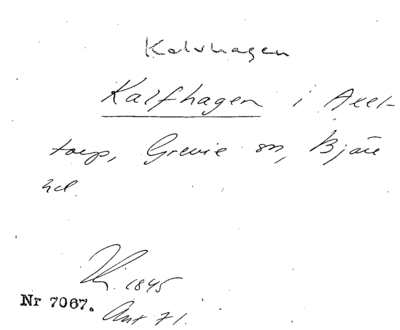 Kalvhagen
Kalfhagen i Axel-
torp, Grevie sn, Bjäre
hd.
1845
Nr 7067.
Ant 71.